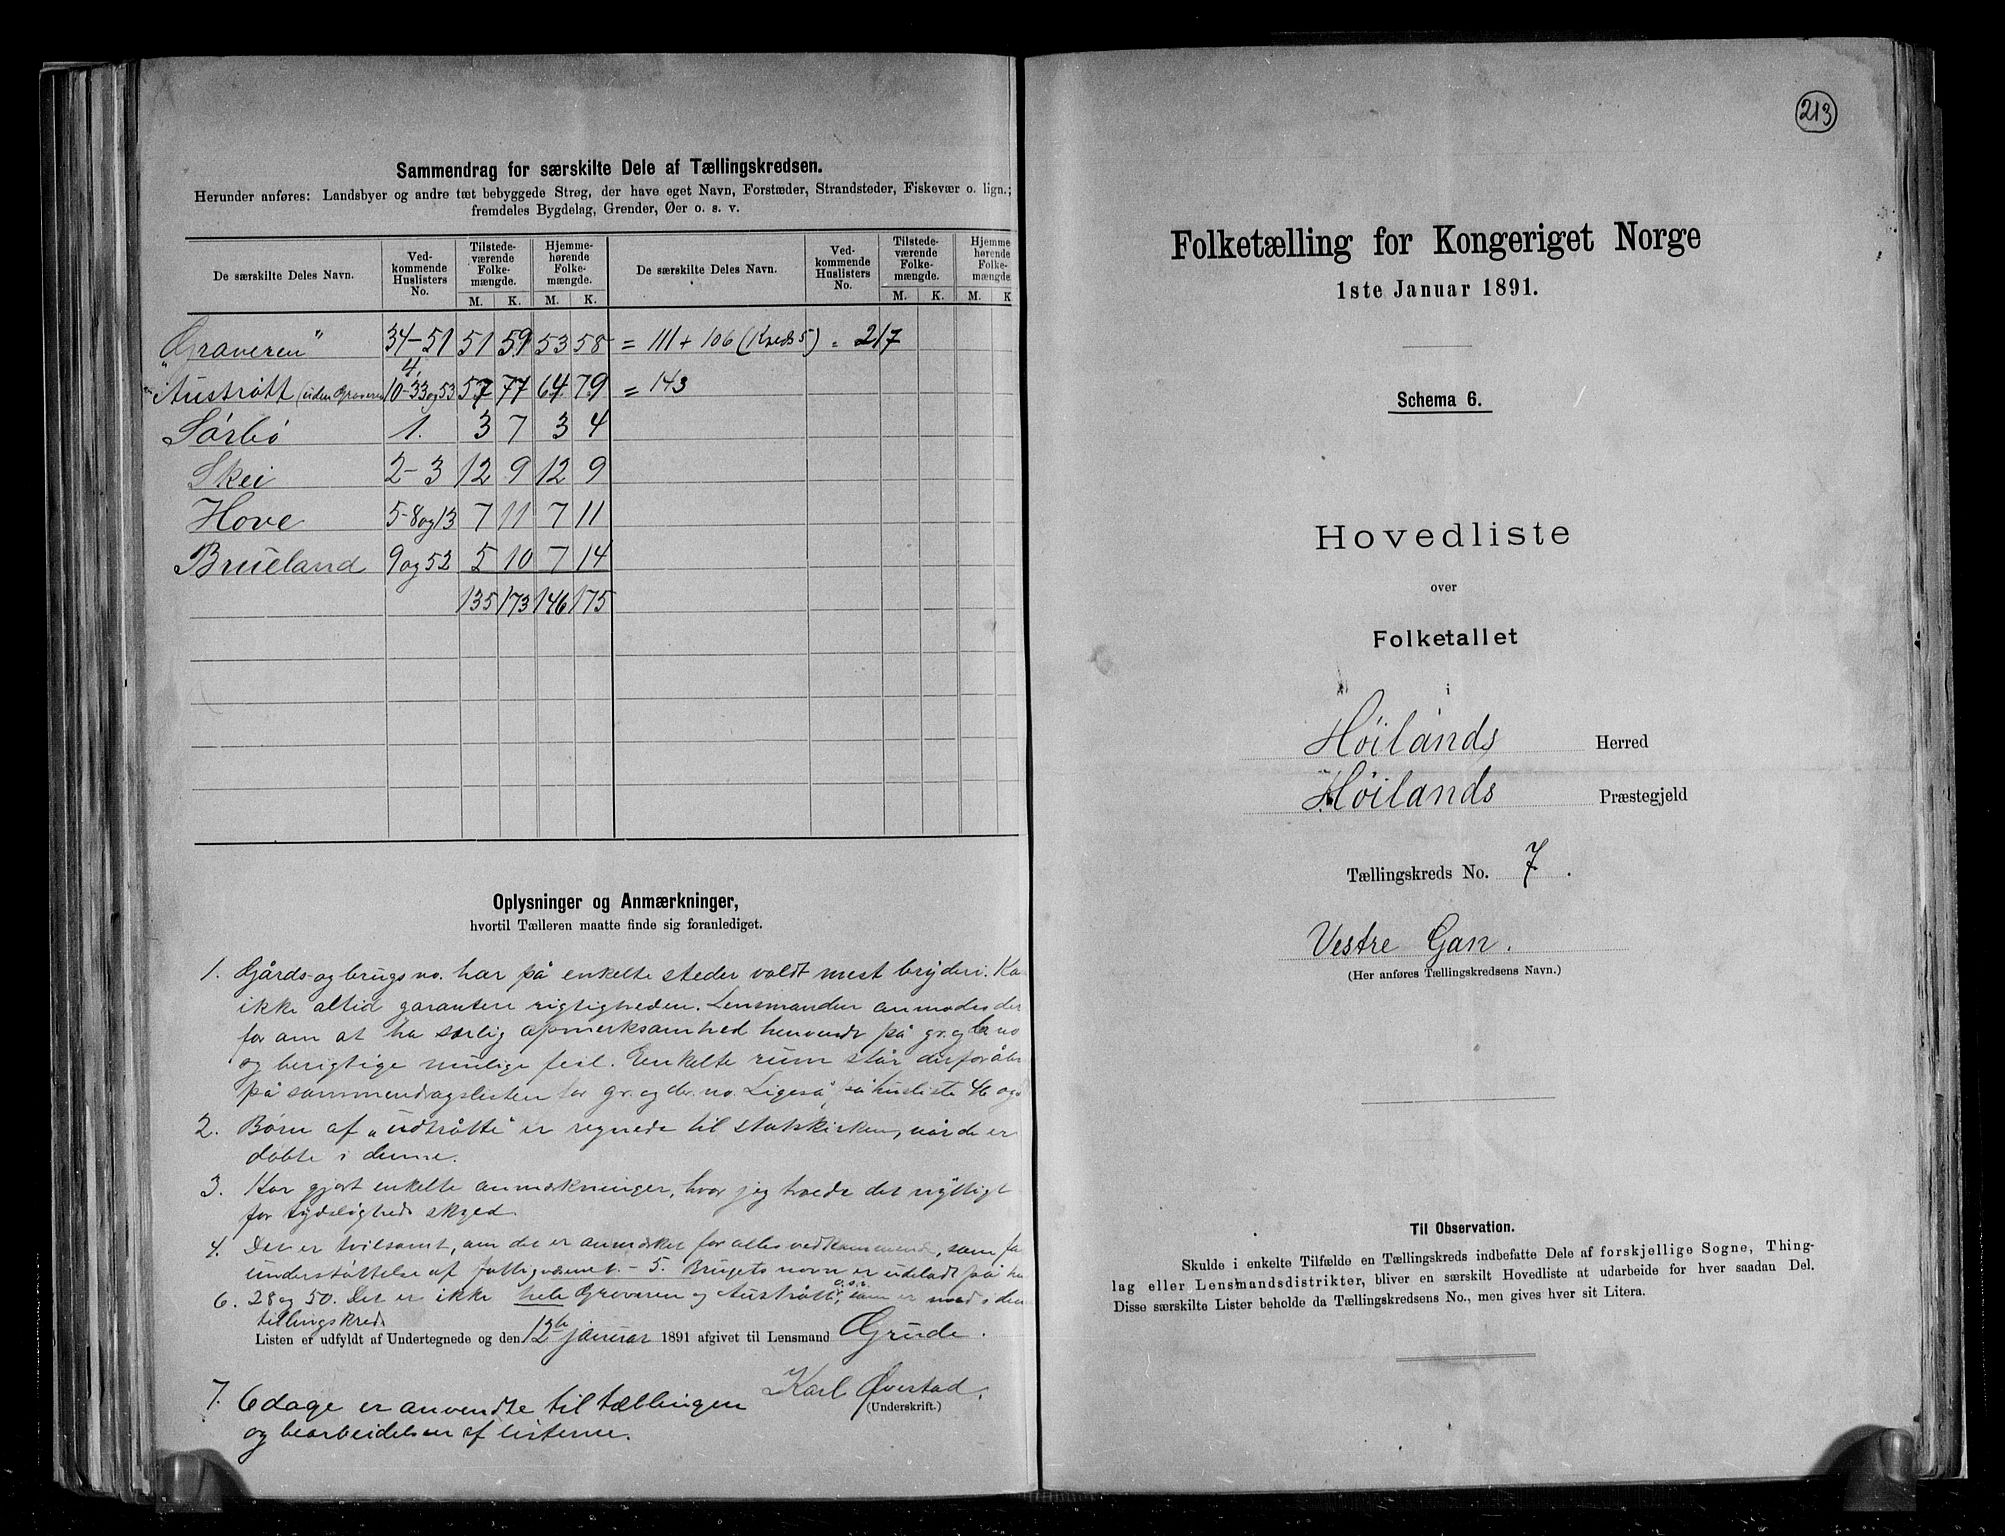 Sammendrag for særskilte Dele af Tællingskredsen.
Herunder anføres: Landsbyer og andre tæt bebyggede Strøg, der have eget Navn, Forstæder, Strandsteder, Fiskevær o. lign.;
fremdeles Bygdelag, Grender, Øer o. s. v.
De særskilte Deles Navn. Ved-kommende Huslisters No. Tilstede-værende Folke-mængde. Hjemme-hørende Folke-mængde. De særskilte Deles Navn. Ved-kommende Huslisters No. Tilstede-værende Folke-mængde. Hjemme hørende Folke-mængde
M. K. M. K. M. K. M. K
"Graveren" 34-51 51 59 53 58 = 111 + 106 (Kreds 5) = 217
4,
Austrått (uden Graveren 10-33 og 53 57 77 64 79 = 143
Sørbø 1. 3 7 3 4
Skei 2-3 12 9 12 9
Hove 5-8 og 13 7 11 7 11
Brueland 9 og 52 5 10 7 14
135 173 146 175
Oplysninger og Anmærkninger,
hvortil Tælleren maatte finde sig foranlediget.
1. Gårds- og brugsno. har på enkelte steder voldt mest bryderi. Ka
ikke altid garantere rigtigheden. Lensmanden anmodes der
for om at ha særlig opmerksomhed henvendt på gr. og br no
og berigtige mulige feil. Enkelte rum står derfor åbn
på sammendragslisten for gr. og br. no. Ligeså på husliste 46 og
2. Børn af "udtrådte" er regnede til statskirken, når de er
døbte i denne.
3. Har gjort enkelte anmerkninger, hvor jeg troede det nyttigt
for tydeligheds skyld.
4. Det er tvilsomt, om det er anmerket for alle vedkommende, som får
understøttelse af fattigvæsenet. - 5. Brugets navn er udeladt på
6. 28 og 50. Det er ikke hele Graveren og Austrått, som er med i den
tællingskreds
Listen er udfyldt af Undertegnede og den 12te januar 1891 afgivet til Lensmand Grude.
Karl Øvestad.
(Underskrift.)
7. 6 dage er anvendte til tællingen
og bearbeidelsen af listerne.
213
Folketælling for Kongeriget Norge
1ste Januar 1891.
Schema 6.
Hovedliste
over
Folketallet
i
Høilands Herred
Høilands Præstegjeld
Tællingskreds No. 7.
Vestre Gan.
(Her anføres Tællingskredsens Navn.)
Til Observation.
Skulde i enkelte Tilfælde en Tællingskreds indbefatte Dele af forskjellige Sogne, Thing-
lag eller Lensmandsdistrikter, bliver en særskilt Hovedliste at udarbeide for hver saadan Del.
Disse særskilte Lister beholde da Tællingskredsens No., men gives hver sit Litera.